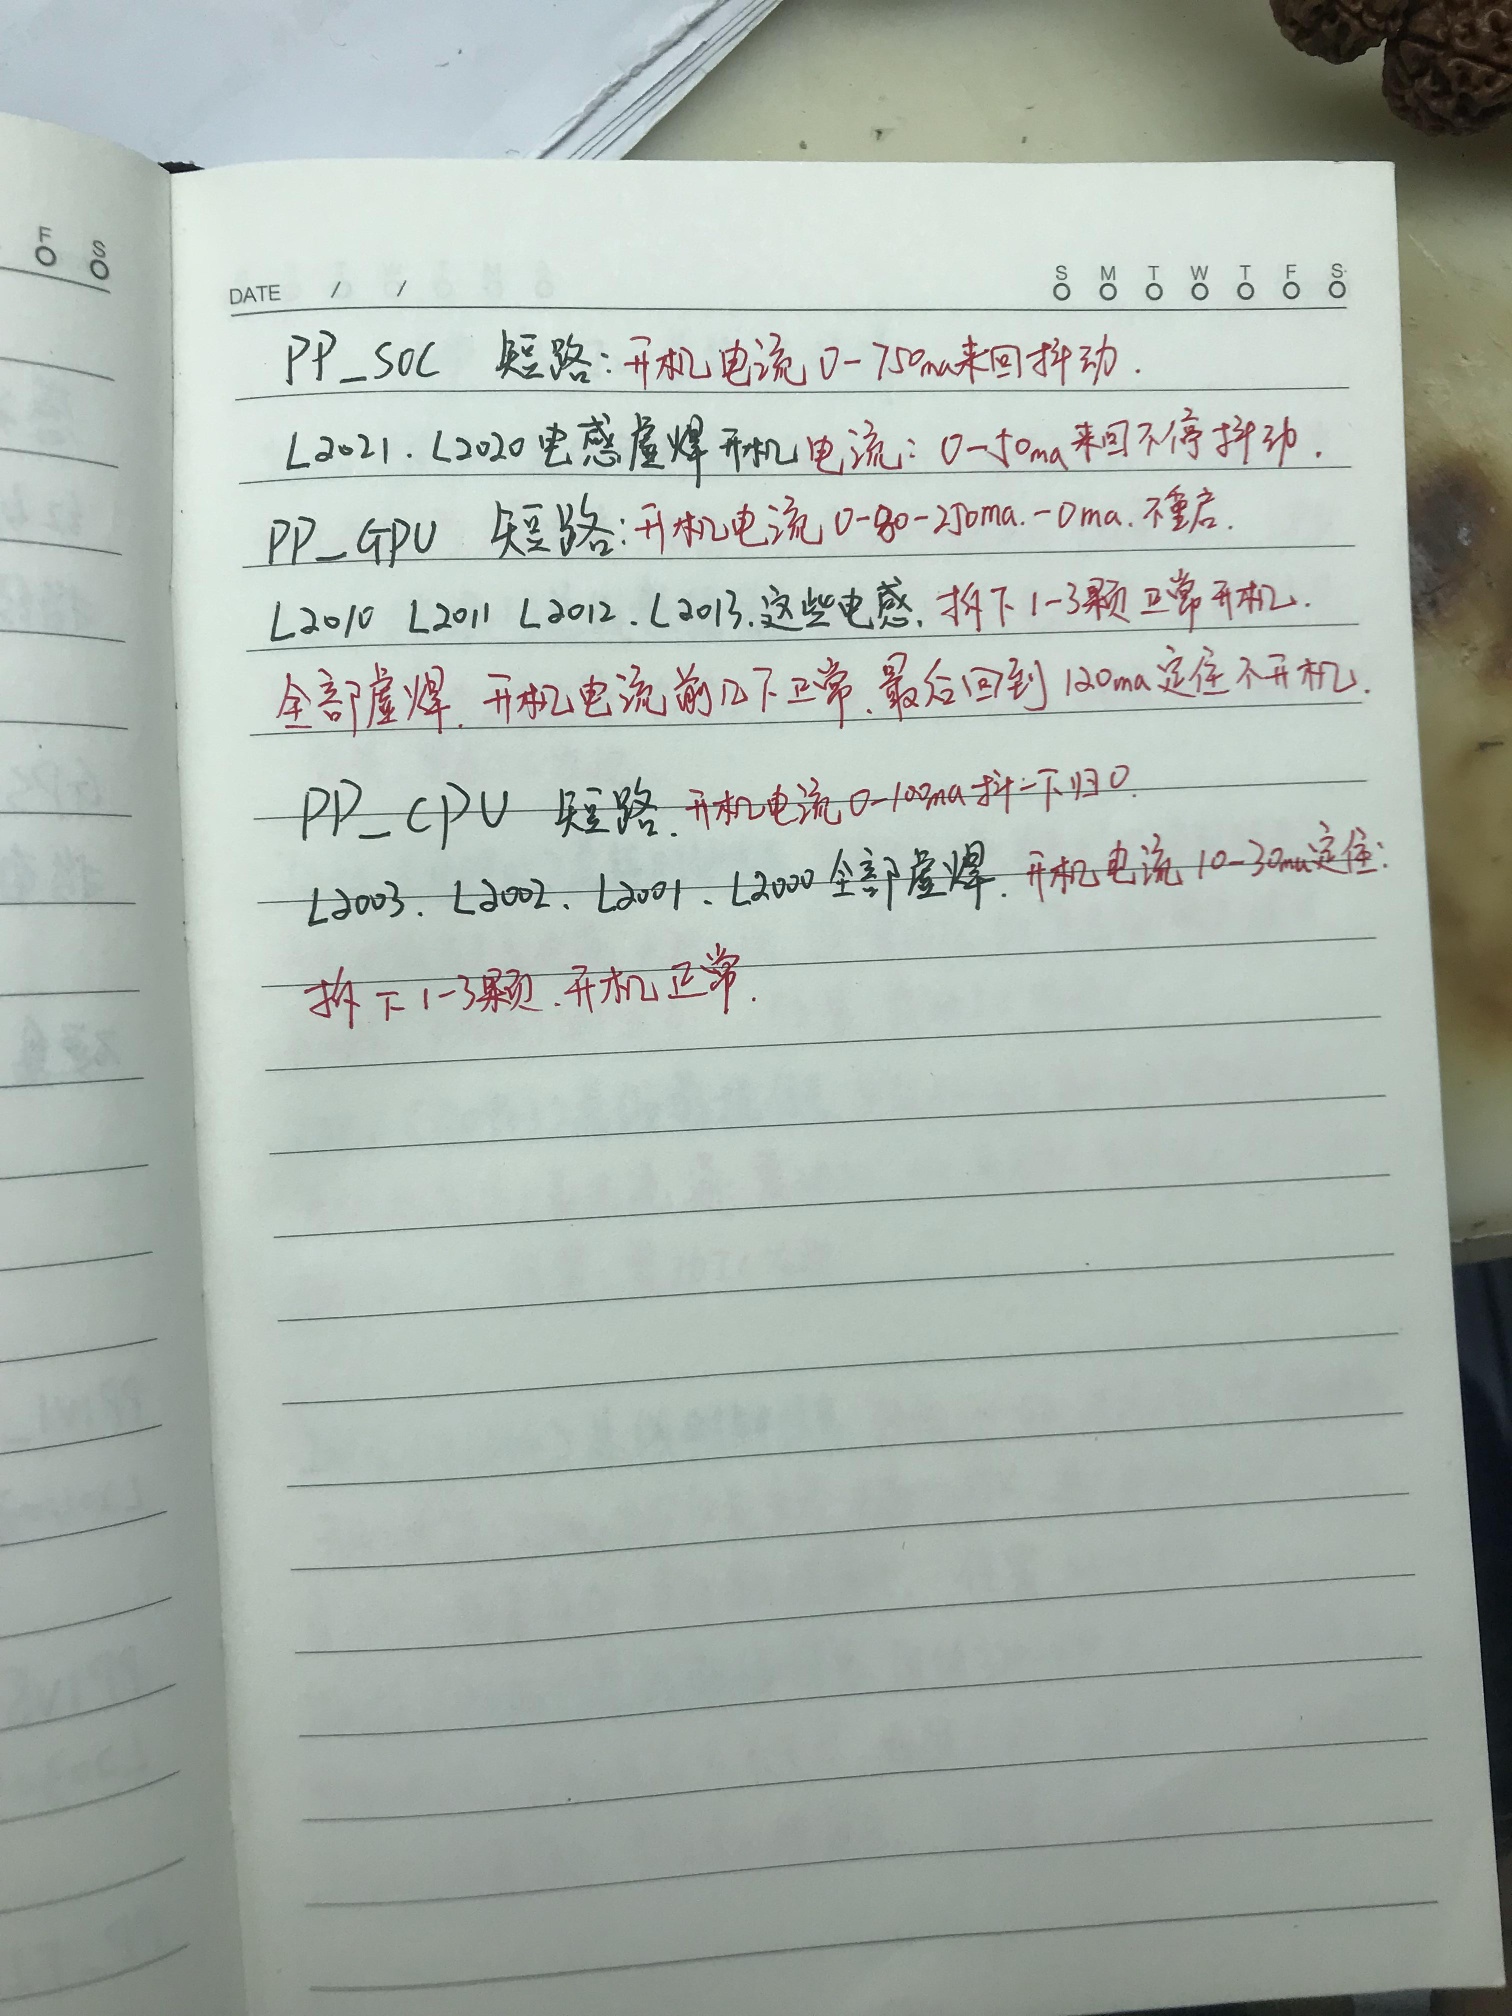 F S
DATE / / S M T W T F S
PP_SOC 短路:开机电流0-750ma来回抖动.
L2021.L2020电感虚焊开机电流:0-50ma来回不停抖动.
PP_GPU 短路:开机电流0-80-250ma.-0ma.不重启.
L2010 L2011 L2012.L2013.这些电感.拆下1-3颗正常开机.
全部虚焊.开机电流前几下正常.最后回到120ma定住不开机.
PP_CPU 短路.开机电流0-100ma抖一下归0.
L2003.L2002.L2001.L2000全部虚焊.开机电流10-30ma定住:
拆下1-3颗.开机正常.